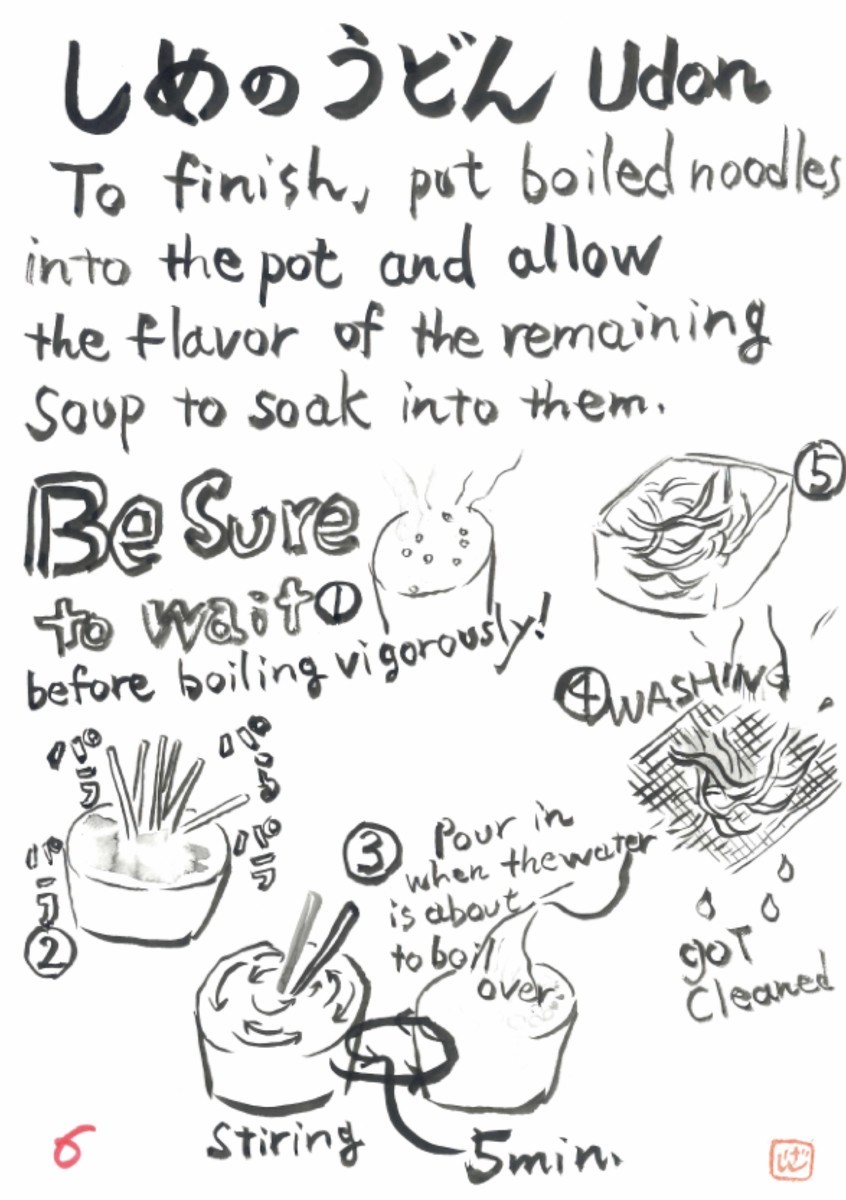 しめのうどん Udon
To finish, put boiled noodles
into the pot and allow
the flavor of the remaining
soup to soak into them.
Be Sure
to wait ①
before boiling vigorously!
⑤
④ WASHING
got
cleaned
パラ
パラ
パラ
パラ
②
③ Pour in
when the water
is about
to boil
over
stiring
5min.
6